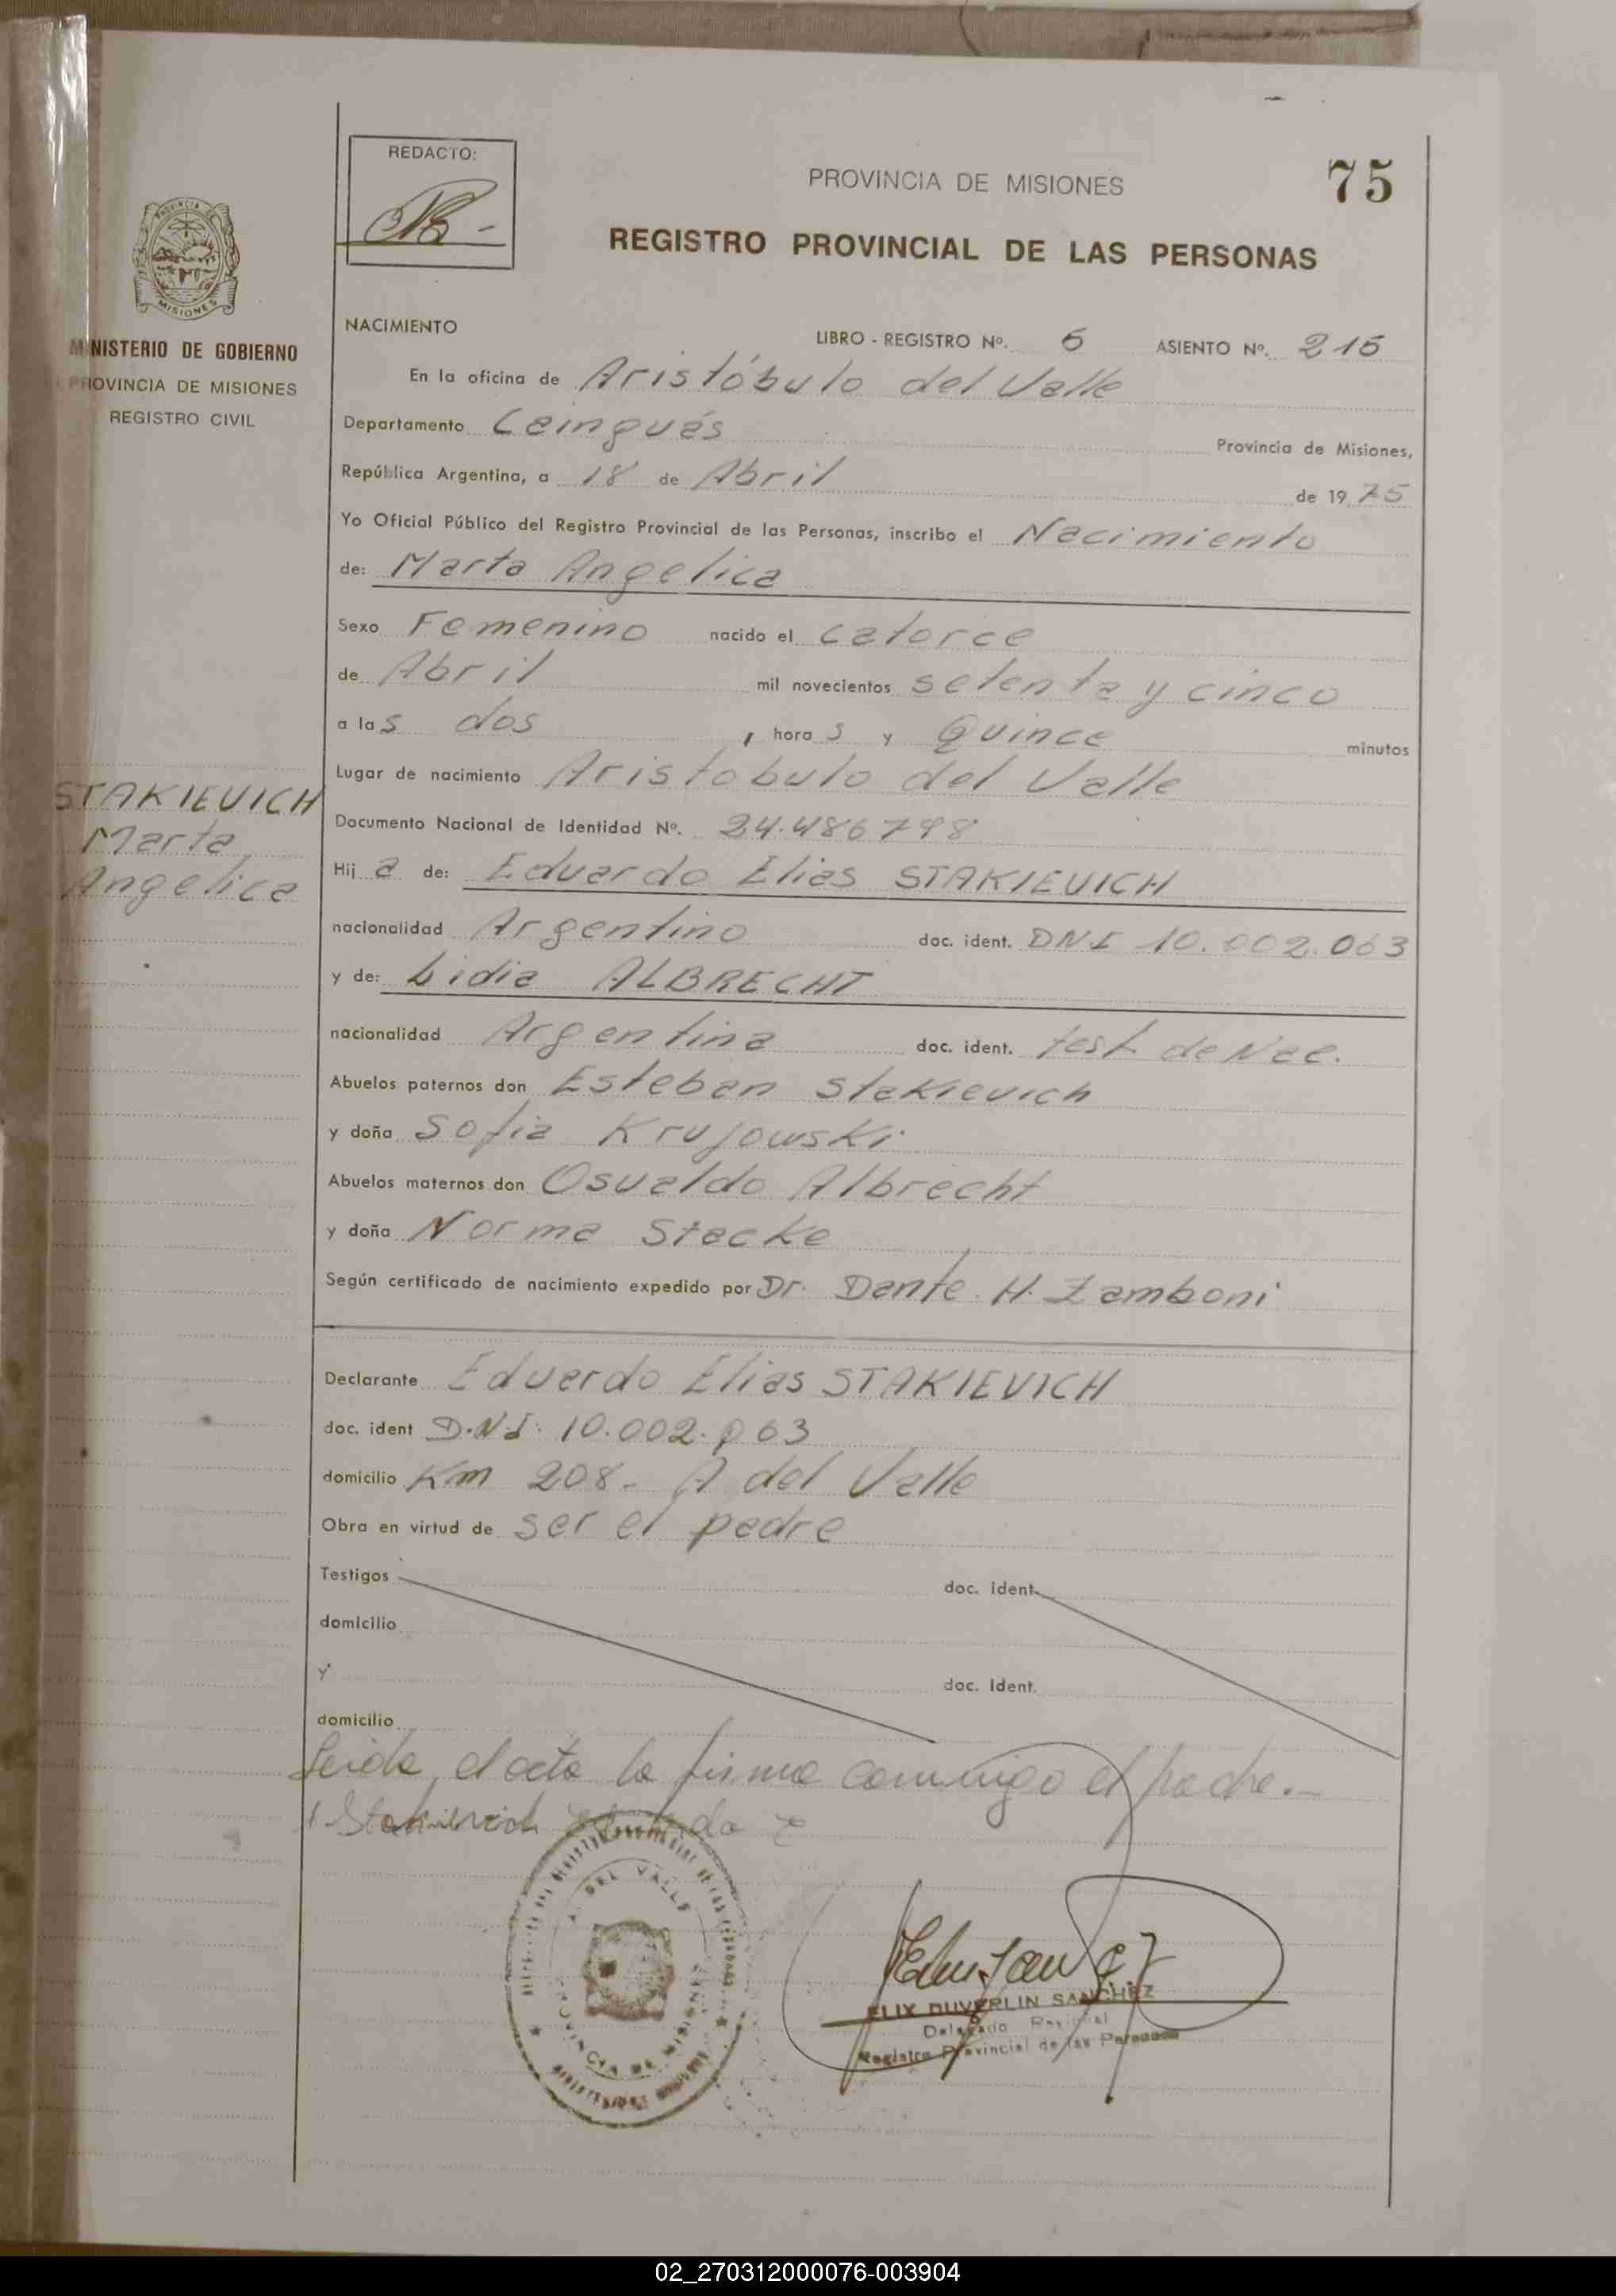 REDACTO:
PROVINCIA DE MISIONES
75
REGISTRO PROVINCIAL DE LAS PERSONAS
PROVINCIA DE
MISIONES
MINISTERIO DE GOBIERNO
PROVINCIA DE MISIONES
REGISTRO CIVIL
NACIMIENTO
LIBRO - REGISTRO Nº. 5 ASIENTO Nº. 215
En la oficina de Aristóbulo del Valle
Departamento Caingués Provincia de Misiones,
República Argentina, a 18 de Abril de 1975
Yo Oficial Público del Registro Provincial de las Personas, inscribo el Nacimiento
de: Marta Angelica
Sexo Femenino nacido el catorce
de Abril mil novecientos setenta y cinco
a las dos , horas y Quince minutos
Lugar de nacimiento Aristobulo del Valle
STAKIEVICH
Marta
Angelica
Documento Nacional de Identidad Nº. 24.486798
Hija de: Eduardo Elias STAKIEVICH
nacionalidad Argentino doc. ident. DNI 10.002.063
y de: Lidia ALBRECHT
nacionalidad Argentina doc. ident. test de Nac.
Abuelos paternos don Esteban Stakievich
y doña Sofia Krujowski
Abuelos maternos don Osvaldo Albrecht
y doña Norma Stacke
Según certificado de nacimiento expedido por Dr. Dante H. Zamboni
Declarante Eduardo Elias STAKIEVICH
doc. ident D.N.I. 10.002.063
domicilio Km 208- A del Valle
Obra en virtud de ser el padre
Testigos doc. ident.
domicilio
y doc. Ident.
domicilio
Leida el acta la firma conmigo el padre.-
Stakievich Eduardo E
A. DEL VALLE
PROVINCIA DE MISIONES
FELIX DUVERLIN SANCHEZ
Delegado Regional
Registro Provincial de las Personas
02_270312000076-003904